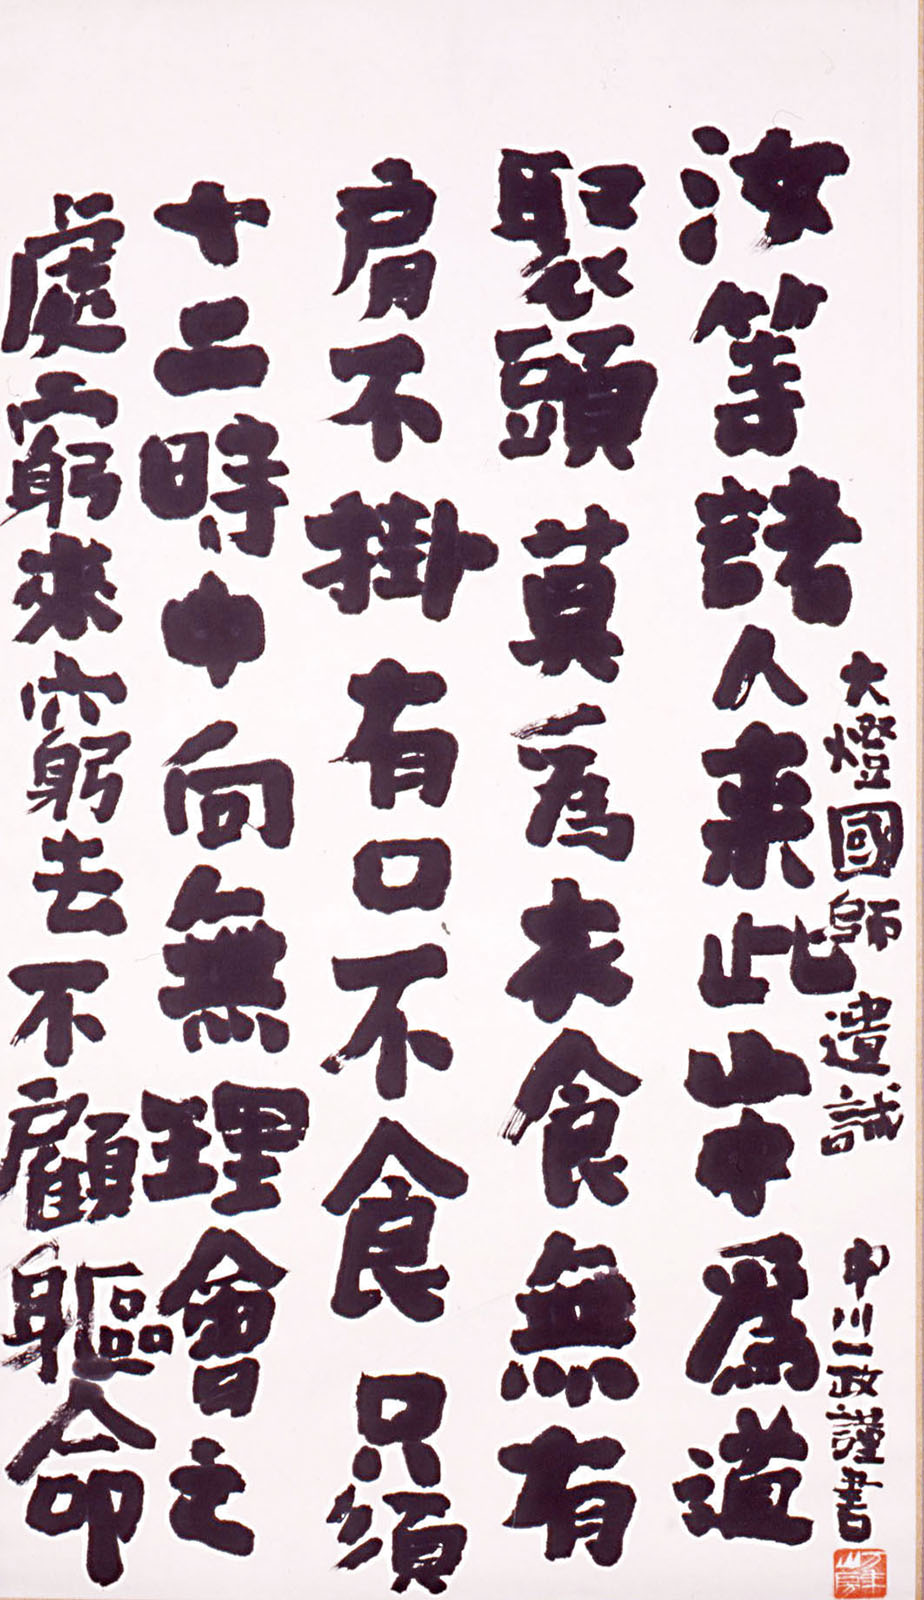 大燈國師遺誡 中川一政謹書
汝等諸人来此山中爲道
聚頭莫為衣食無有
肩不掛有口不食只須
十二時中向無理會之
處窮來窮去不顧軀命